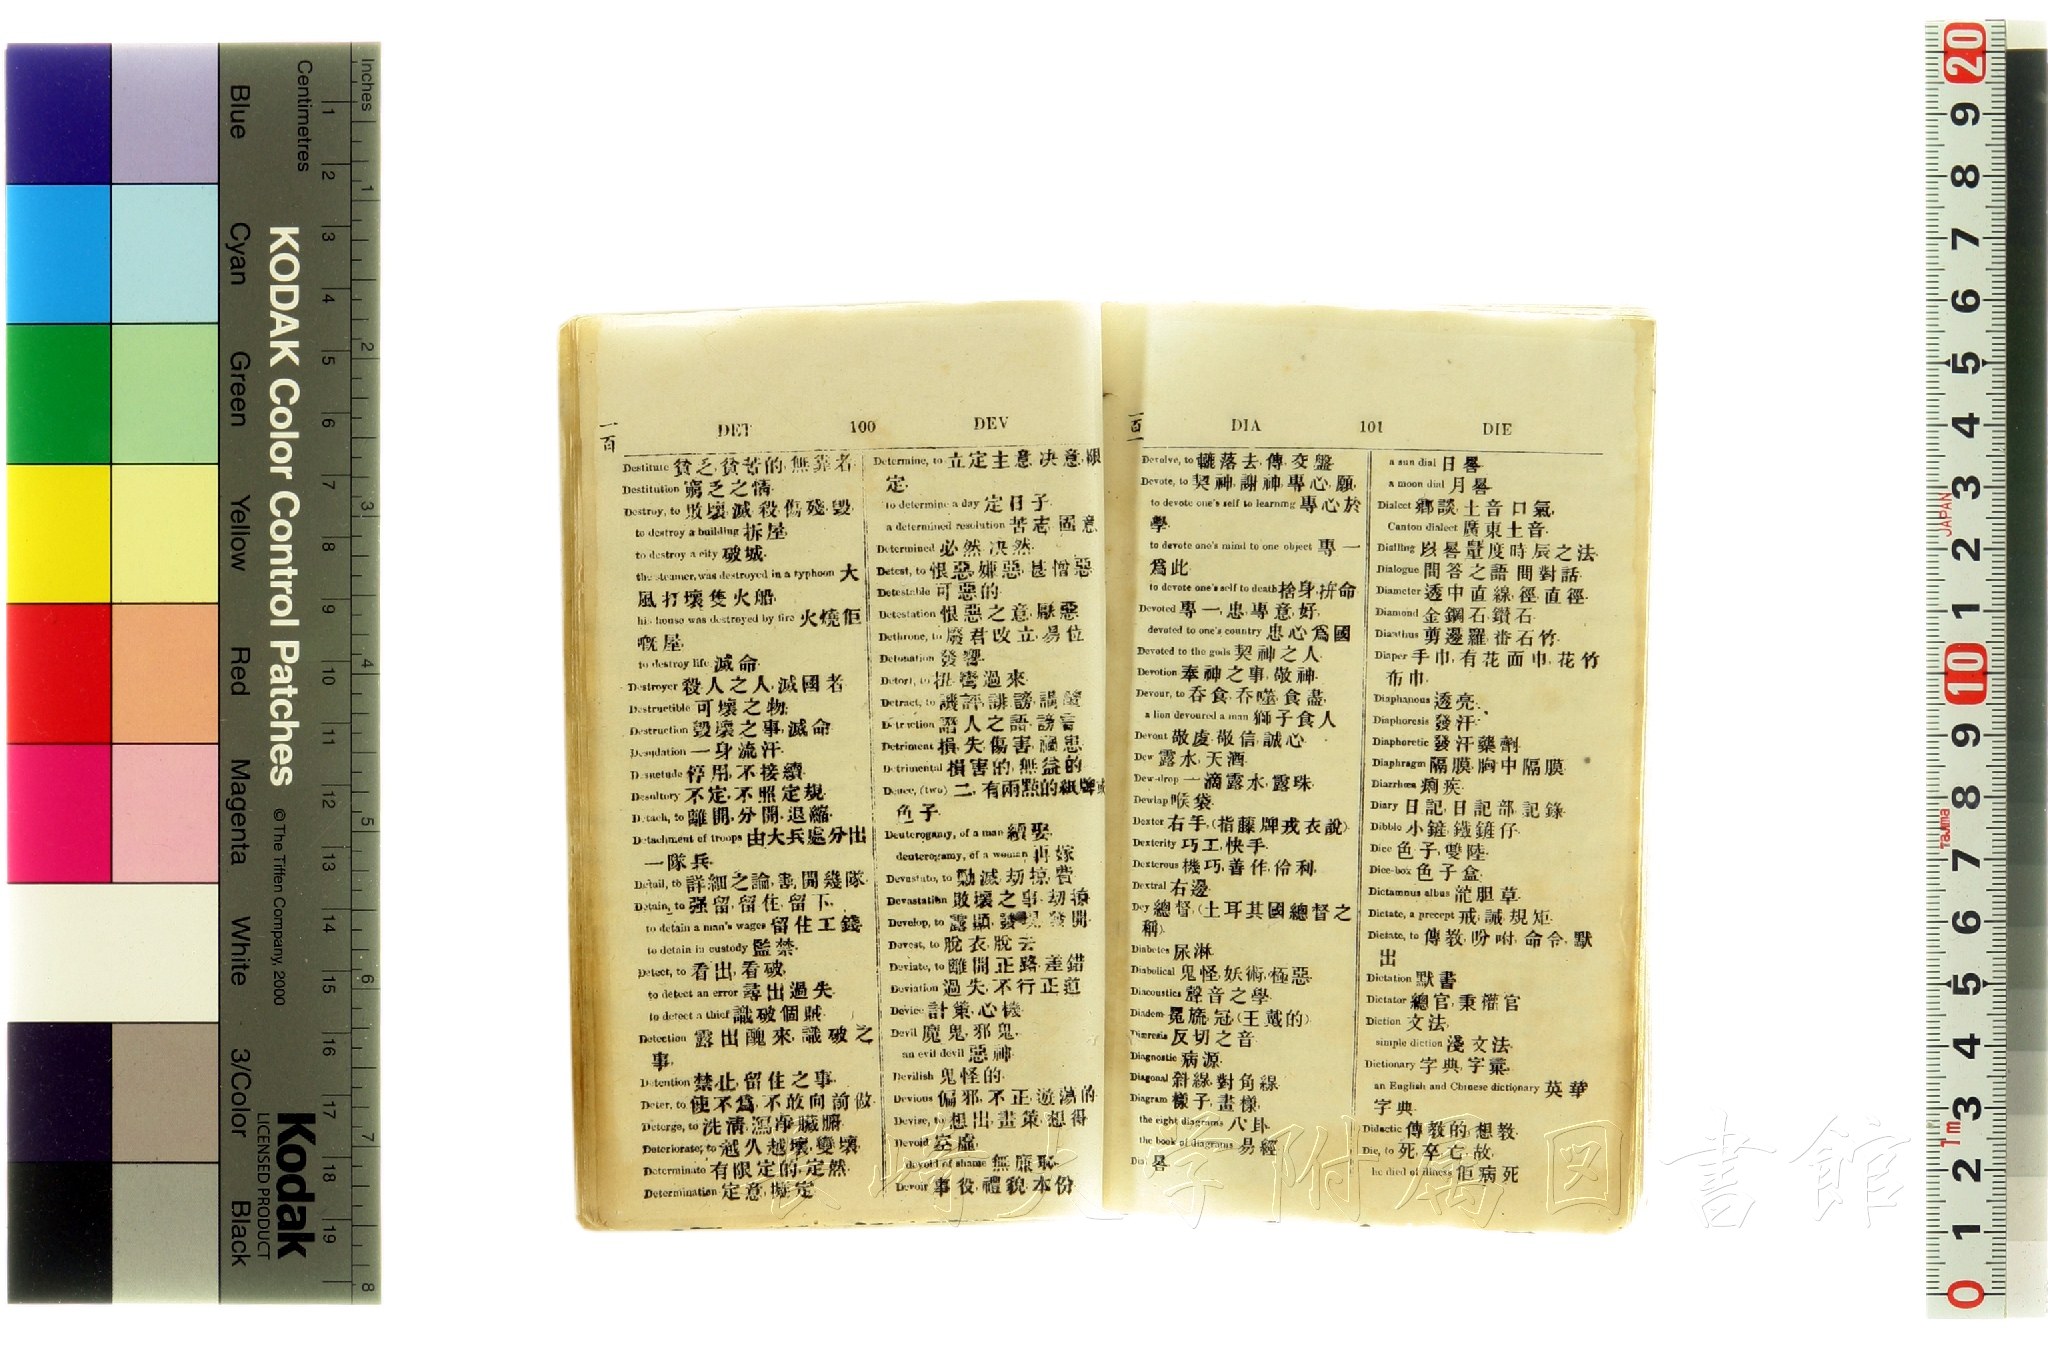 一百
DET 100 DEV
Destitute 貧乏, 貧苦的, 無靠者
Destitution 窮乏之情
Destroy, to 敗壞, 滅, 殺, 傷殘, 毀
to destroy a building 拆屋
to destroy a city 破城
the steamer, was destroyed in a typhoon 大
風打壞隻火船
his house was destroyed by fire 火燒佢
嘅屋
to destroy life 滅命
Destroyer 殺人之人, 滅國者
Destructible 可壞之物
Destruction 毀壞之事, 滅命
Desudation 一身流汗
Desuetude 停用, 不接續
Desultory 不定, 不照定規
Detach, to 離開, 分開, 退縮
Detachment of troops 由大兵處分出
一隊兵
Detail, to 詳細之論, 書, 開幾隊
Detain, to 强留, 留住, 留下
to detain a man's wages 留住工錢
to detain in custody 監禁
Detect, to 看出, 看破
to detect an error 尋出過失
to detect a thief 識破個賊
Detection 露出醜來, 識破之
事
Detention 禁止, 留住之事
Deter, to 使不爲, 不敢向前做
Deterge, to 洗清, 瀉淨臟腑
Deteriorate, to 越久越壞, 變壞
Determinate 有限定的, 定然
Determination 定意, 擬定
Determine, to 立定主意, 决意, 限
定
to determine a day 定日子
a determined resolution 苦志, 固意
Determined 必然, 决然
Detest, to 恨惡, 嫌惡, 甚憎惡
Detestable 可惡的
Detestation 恨惡之意, 厭惡
Dethrone, to 廢君改立, 易位
Detonation 發響
Detort, to 扭彎過來
Detract, to 譏評, 誹謗
Detraction 譖人之語, 謗言
Detriment 損失, 傷害, 禍患
Detrimental 損害的, 無益的
Deuce, (two) 二, 有兩點的紙牌或
色子
Deuterogamy, of a man 續娶
deuterogamy, of a woman 再嫁
Devastate, to 勦滅, 劫掠, 費
Devastation 敗壞之事, 劫掠
Develop, to 露顯, 發開
Devest, to 脫衣, 脫去
Deviate, to 離開正路, 差錯
Deviation 過失, 不行正道
Device 計策, 心機
Devil 魔鬼, 邪鬼
an evil devil 惡神
Devilish 鬼怪的
Devious 偏邪, 不正, 遊蕩的
Devise, to 想出, 畫策, 想得
Devoid 空虛
devoid of shame 無廉恥
Devoir 事役, 禮貌, 本份
一百一
DIA 101 DIE
Devolve, to 轆落去, 傳, 交盤
Devote, to 契神, 謝神, 專心, 願
to devote one's self to learning 專心於
學
to devote one's mind to one object 專一
爲此
to devote one's self to death 捨身, 拚命
Devoted 專一, 忠, 專意好
devoted to one's country 忠心爲國
Devoted to the gods 契神之人
Devotion 奉神之事, 敬神
Devour, to 吞食, 吞噬, 食盡
a lion devoured a man 獅子食人
Devout 敬虔, 敬信, 誠心
Dew 露水, 天酒
Dew-drop 一滴露水, 露珠
Dewlap 喉袋
Dexter 右手, (指藤牌戎衣說)
Dexterity 巧工, 快手
Dexterous 機巧, 善作, 伶利
Dextral 右邊
Dey 總督, (土耳其國總督之
稱)
Diabetes 尿淋
Diabolical 鬼怪, 妖術, 極惡
Diacoustics 聲音之學
Diadem 冕旒, 冠(王戴的)
Diæresis 反切之音
Diagnostic 病源
Diagonal 斜線, 對角線
Diagram 樣子, 畫樣
the eight diagrams 八卦
the book of diagrams 易經
Dial 晷
a sun dial 日晷
a moon dial 月晷
Dialect 鄉談, 土音, 口氣
Canton dialect 廣東土音
Dialling 以晷度時辰之法
Dialogue 問答之語, 問對話
Diameter 透中直線, 徑, 直徑
Diamond 金鋼石, 鑽石
Dianthus 剪邊羅, 番石竹
Diaper 手巾, 有花面巾, 花竹
布巾
Diaphanous 透亮
Diaphoresis 發汗
Diaphoretic 發汗藥劑
Diaphragm 隔膜, 胸中隔膜
Diarrhœa 痾疾
Diary 日記, 日記部, 記錄
Dibble 小鏟, 鐵鏟仔
Dice 色子, 雙陸
Dice-box 色子盒
Dictamnus albus 龍胆草
Dictate, a precept 戒, 誡, 規矩
Dictate, to 傳教, 吩咐, 命令, 默
出
Dictation 默書
Dictator 總官, 秉權官
Diction 文法
simple diction 淺文法
Dictionary 字典, 字彙
an English and Chinese dictionary 英華
字典
Didactic 傳教的, 想教
Die, to 死, 卒, 亡, 故
he died of illness 佢病死
長崎大学附属図書館
Inches
Centimetres
KODAK Color Control Patches
© The Tiffen Company, 2000
Kodak
LICENSED PRODUCT
Blue
Cyan
Green
Yellow
Red
Magenta
White
3/Color
Black
1 2 3 4 5 6 7 8 9 10 11 12 13 14 15 16 17 18 19
1 2 3 4 5 6 7 8
20 9 8 7 6 5 4 3 2 1 10 9 8 7 6 5 4 3 2 1 0
JAPAN
Tajima
1m